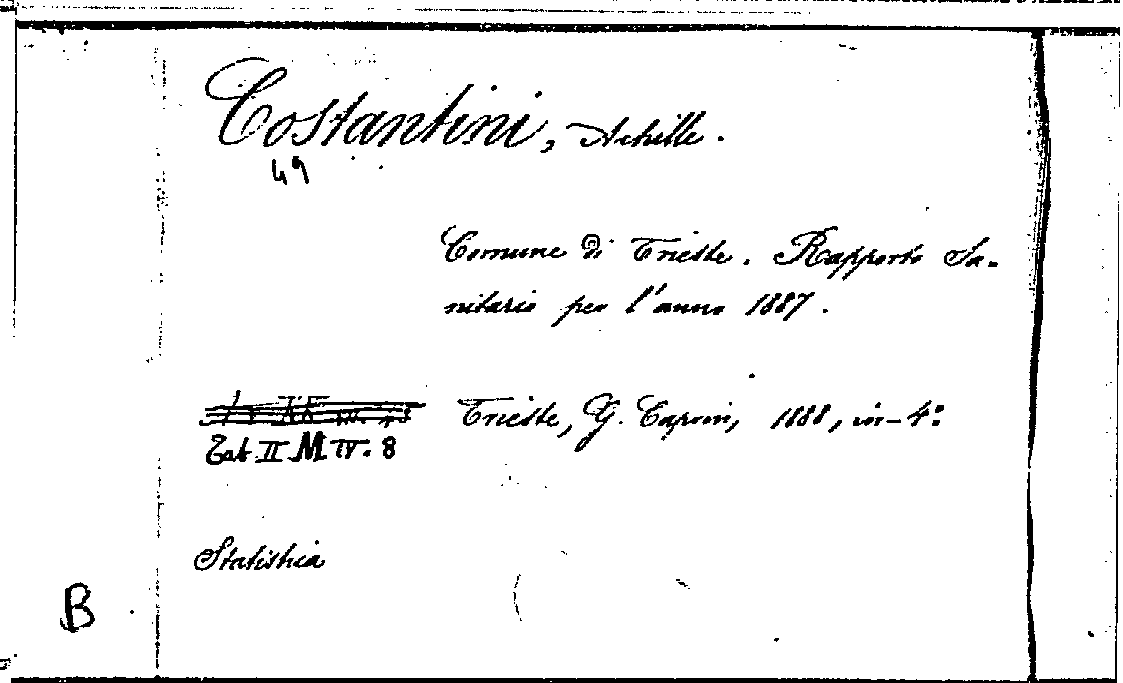 Costantini, Achille.
49
Comune di Trieste. Rapporto Sa-
nitario per l'anno 1887.
Trieste, G. Caprin, 1888, in-4º
Tab. II. M. IV. 8
Statistica
B